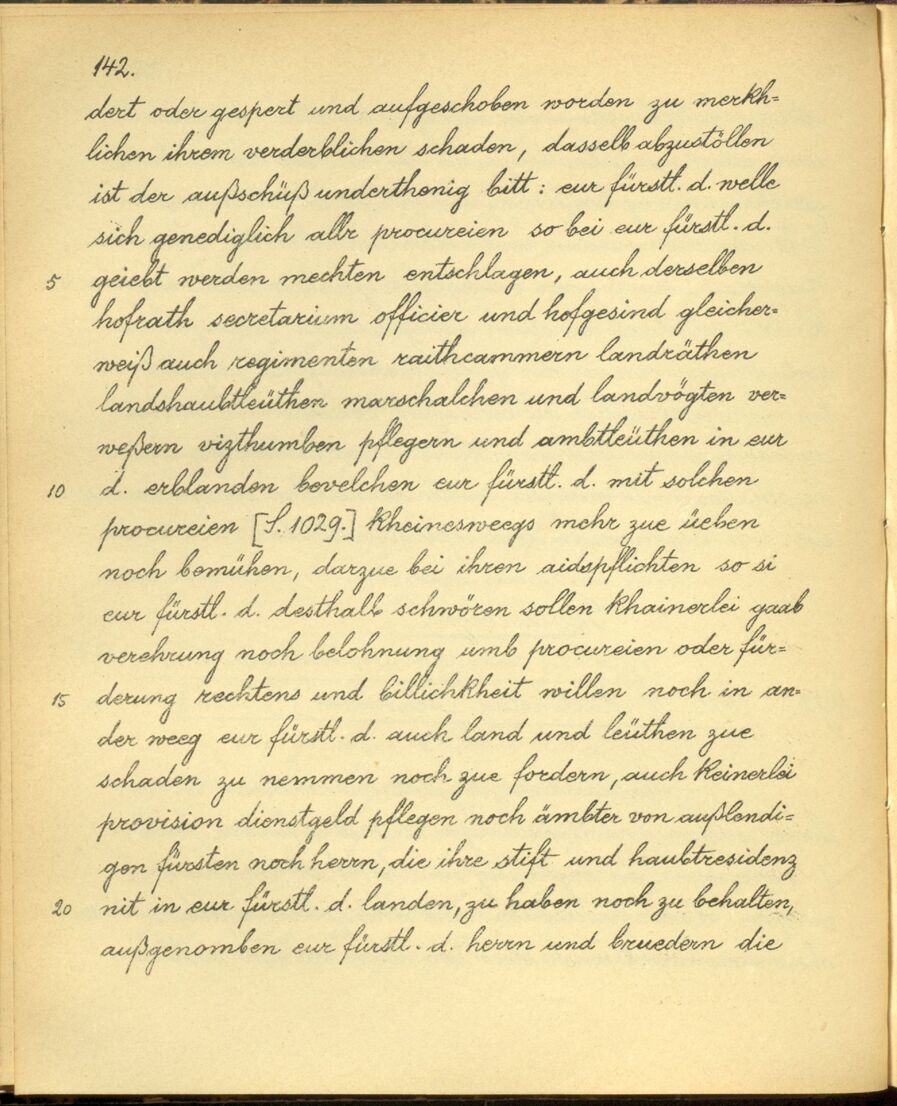 142.
dert oder gespert und aufgeschoben worden zu merkh=
lichen ihrem verderblichen schaden, dasselb abzustöllen
ist der außschüß underthenig bitt: eur fürstl. d. welle
sich genediglich alle procureien so bei eur fürstl. d.
5 geiebt werden mechten entschlagen, auch derselben
hofrath secretarium officier und hofgesind gleicher=
weiß auch regimenten raithcammern landräthen
landshaubtleüthen marschalchen und landvögten ver=
weßern vizthumben pflegern und ambtleüthen in eur
10 d. erblanden bevelchen eur fürstl. d. mit solchen
procureien [S. 1029.] kheinesweegs mehr zue üeben
noch bemühen, darzue bei ihren aidspflichten so si
eur fürstl. d. desthalb schwören sollen khainerlei gaab
verehrung noch belohnung umb procureien oder für=
15 derung rechtens und billichkheit willen noch in an=
der weeg eur fürstl. d. auch land und leüthen zue
schaden zu nemmen noch zue fordern, auch keinerlei
provision dienstgeld pflegen noch ämbter von außlendi=
gen fürsten noch herrn, die ihre stift und haubtresidenz
20 nit in eur fürstl. d. landen, zu haben noch zu behalten,
außgenomben eur fürstl. d. herrn und bruedern die